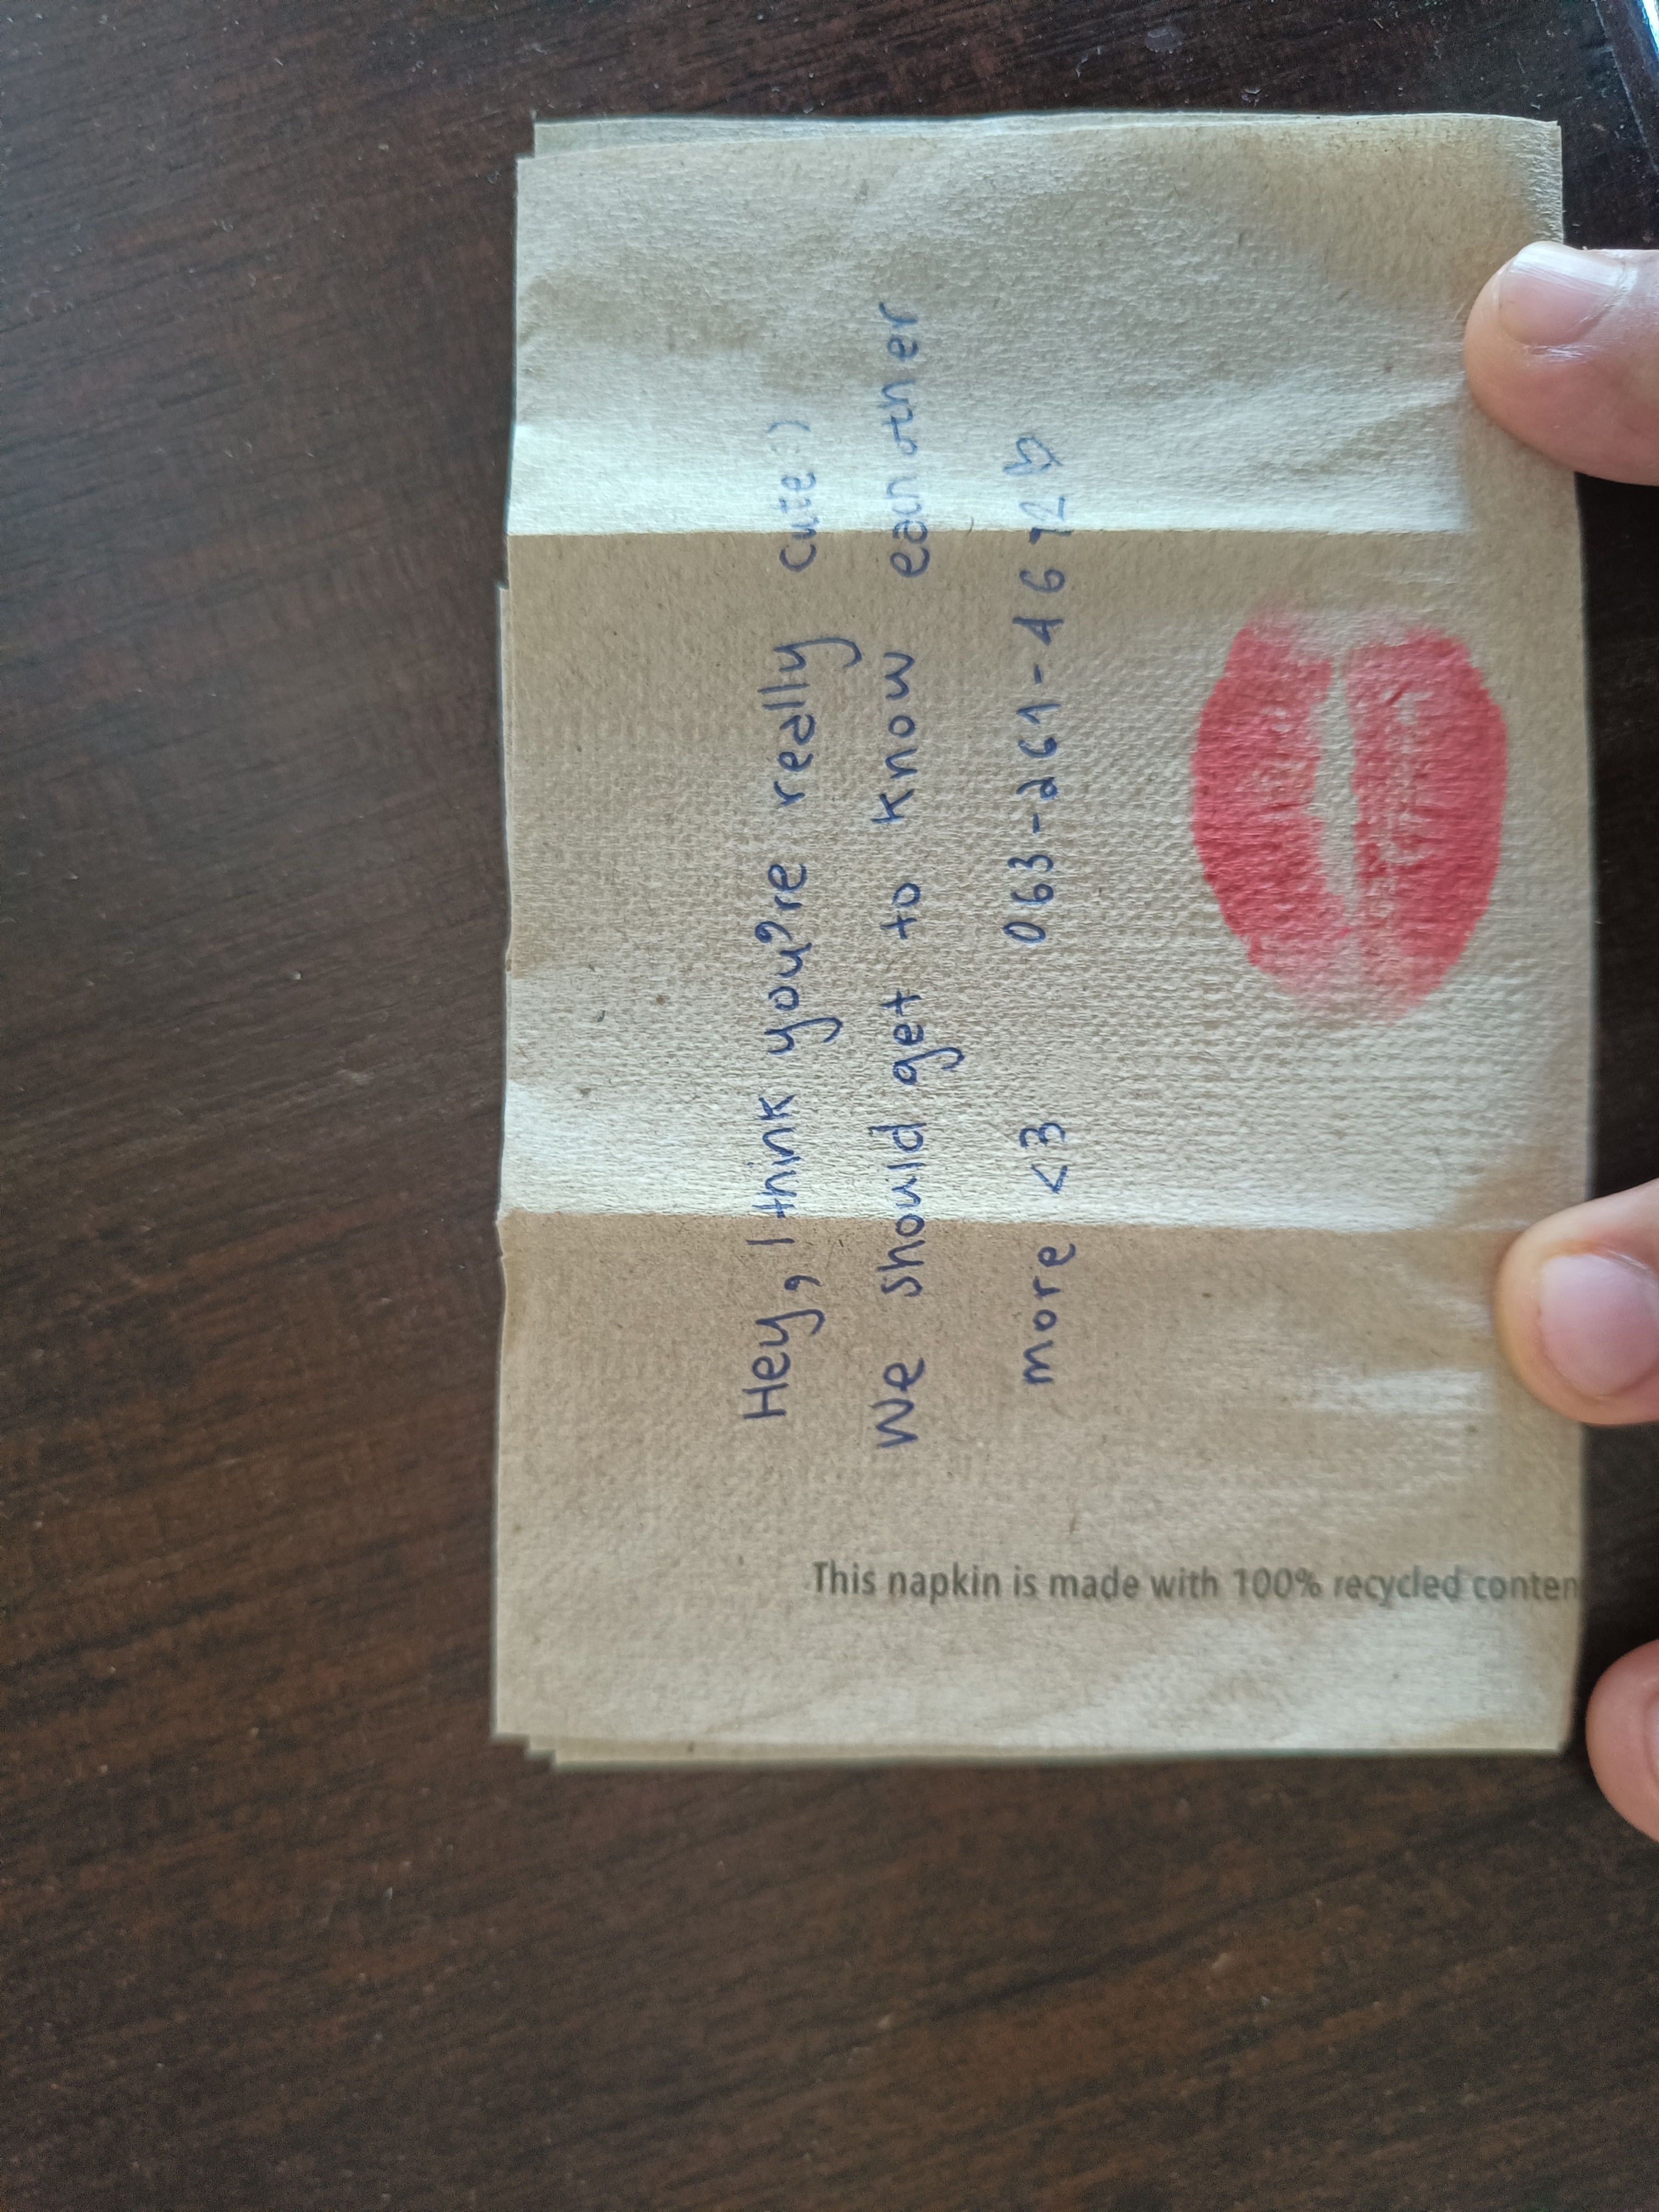 Hey, I think you're really cute :)
We should get to know each other
more <3 063-261-4672 ♡
This napkin is made with 100% recycled conten